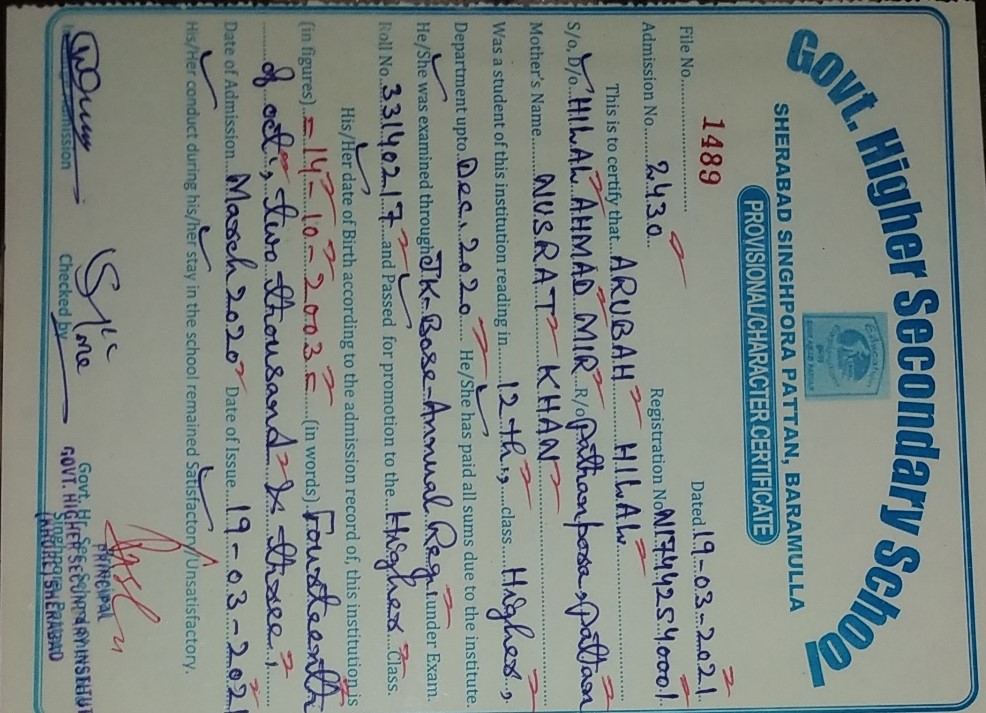 Govt. Higher Secondary School
Education
SHERABAD SINGHPORA PATTAN, BARAMULLA
PROVISIONAL/CHARACTER CERTIFICATE
1489
File No.
Dated. 19-03-2021.
Admission No. 2430
Registration No N17442540001
This is to certify that ARUBAH HILAL
S/o, D/o. HILAL AHMAD MIR R/o pathanpora, pattan
Mother's Name NUSRAT KHAN
Was a student of this institution reading in 12th, class Higher,
Department upto Dec. 2020 He/She has paid all sums due to the institute.
He/She was examined through JK-Bose-Annual Reg. under Exam.
Roll No. 33140217 and Passed for promotion to the Higher Class.
His/Her date of Birth according to the admission record of, this institution is
(in figures) =14-10-2003= (in words) Fourteenth
of oct, two thousand & three,
Date of Admission March 2020 Date of Issue 19-03-2021
His/Her conduct during his/her stay in the school remained Satisfactory/Unsatisfactory.
PRINCIPAL
Admission
Checked by
Govt. Hr. Sec. School
GOVT. HIGHER SECONDARY INSTITUT
Singhpora, Pattan
(KHORE) SHERABAD